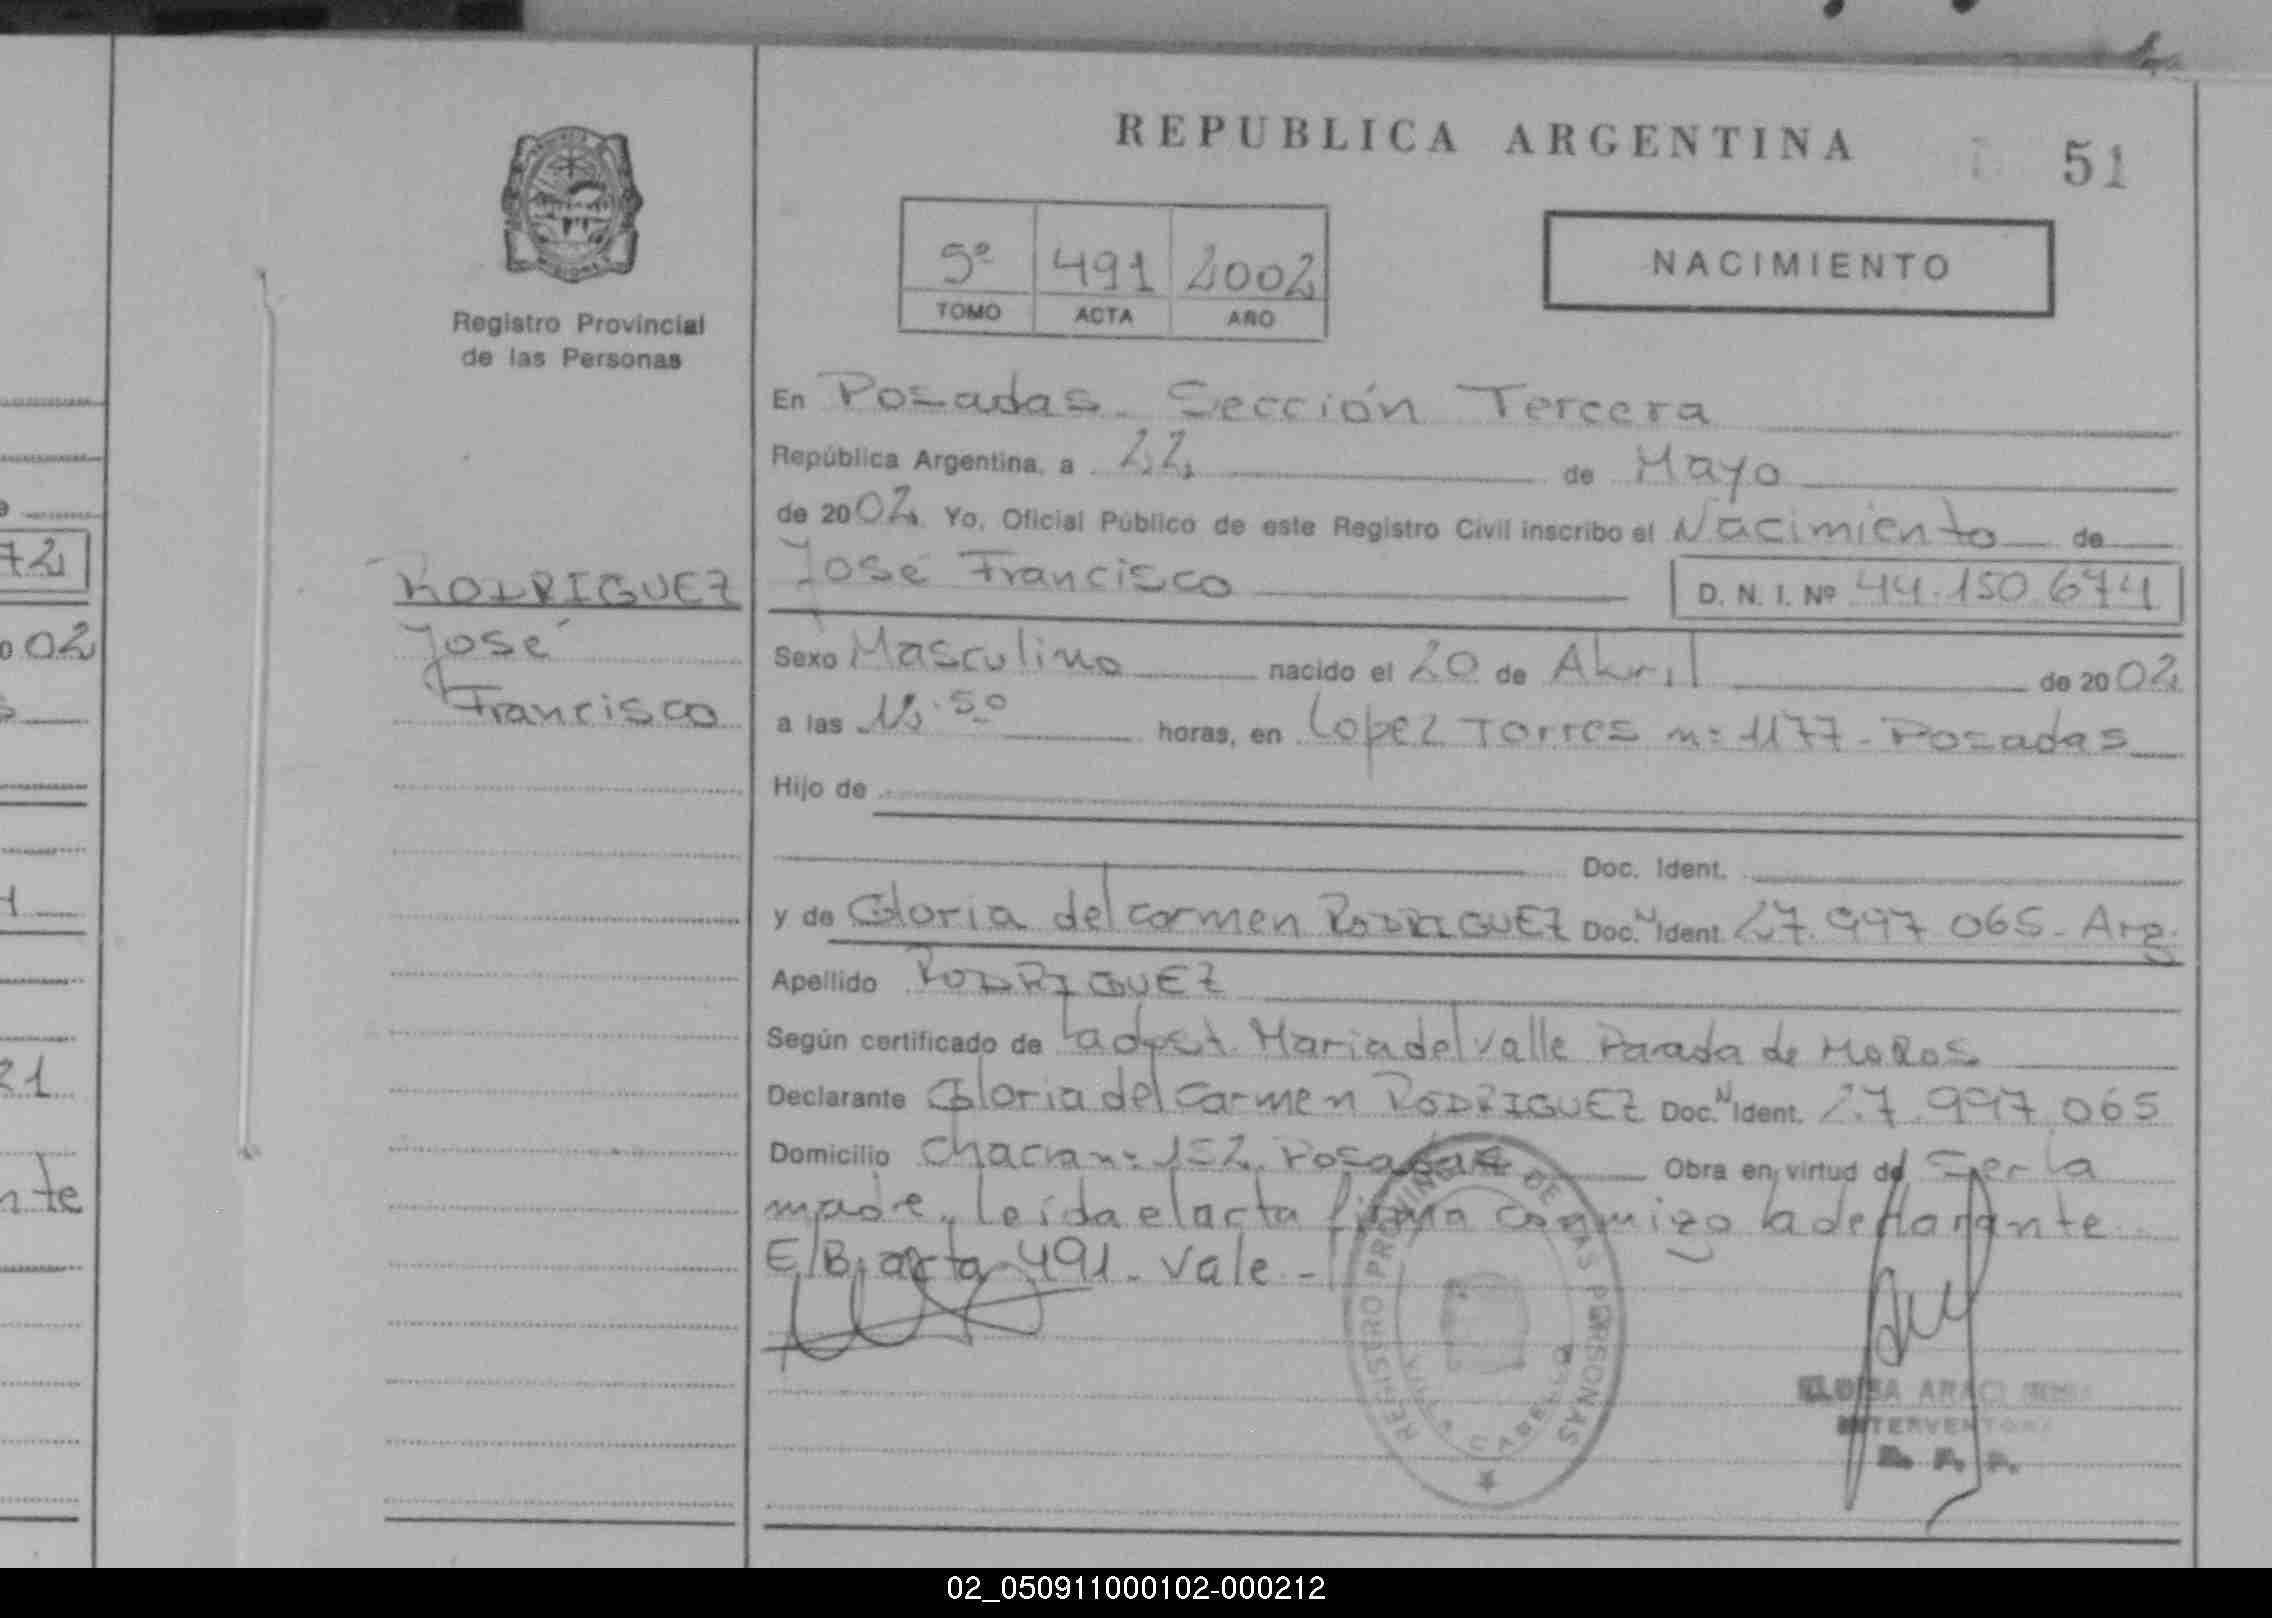 REPUBLICA ARGENTINA
51
5º 491 2002
TOMO ACTA AÑO
NACIMIENTO
Registro Provincial
de las Personas
En Posadas. Sección Tercera
República Argentina, a 22 de Mayo
de 2002. Yo, Oficial Público de este Registro Civil inscribo el Nacimiento de
José Francisco D. N. I. Nº 44.150.674
RODRIGUEZ
José
Francisco
Sexo Masculino nacido el 20 de Abril de 2002
a las horas, en Lopez Torres nº 1177 - Posadas
Hijo de
Doc. Ident.
y de Gloria del carmen RODRIGUEZ Doc. N Ident. 27.997.065 - Arg.
Apellido RODRIGUEZ
Según certificado de la obst. Maria del Valle Parada de
Declarante Gloria del Carmen RODRIGUEZ Doc. N Ident. 27.997.065
Domicilio Chacra nº 152. Posadas Obra en virtud de Ser la
madre. Leída el acta firma conmigo la declarante
E/B. acta 491. Vale -
REGISTRO PROVINCIAL DE LAS PERSONAS
INTERVENTORA
72
02
21
nte
02_050911000102-000212